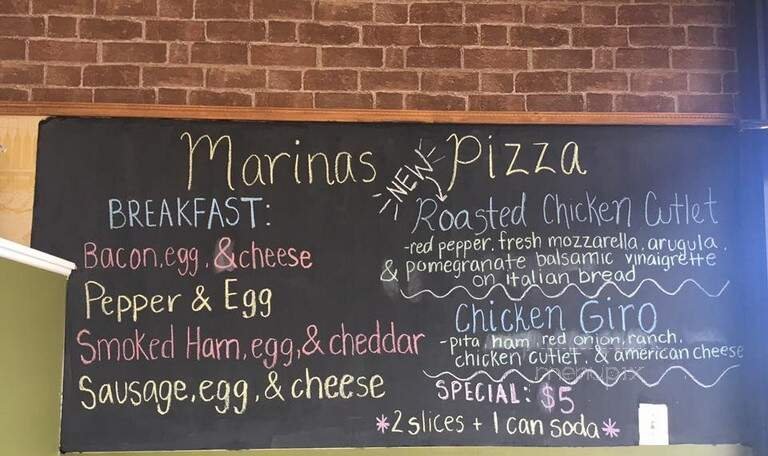 Marinas Pizza
BREAKFAST:
Bacon, egg, & cheese
Pepper & Egg
Smoked Ham, egg, & cheddar
Sausage, egg, & cheese
NEW
Roasted Chicken Cutlet
-red pepper, fresh mozzarella, arugula,
& pomegranate balsamic vinaigrette
on italian bread
Chicken Giro
-pita, ham, red onion, ranch,
chicken cutlet, & american cheese
menupix
SPECIAL: $5
*2 slices + 1 can soda*